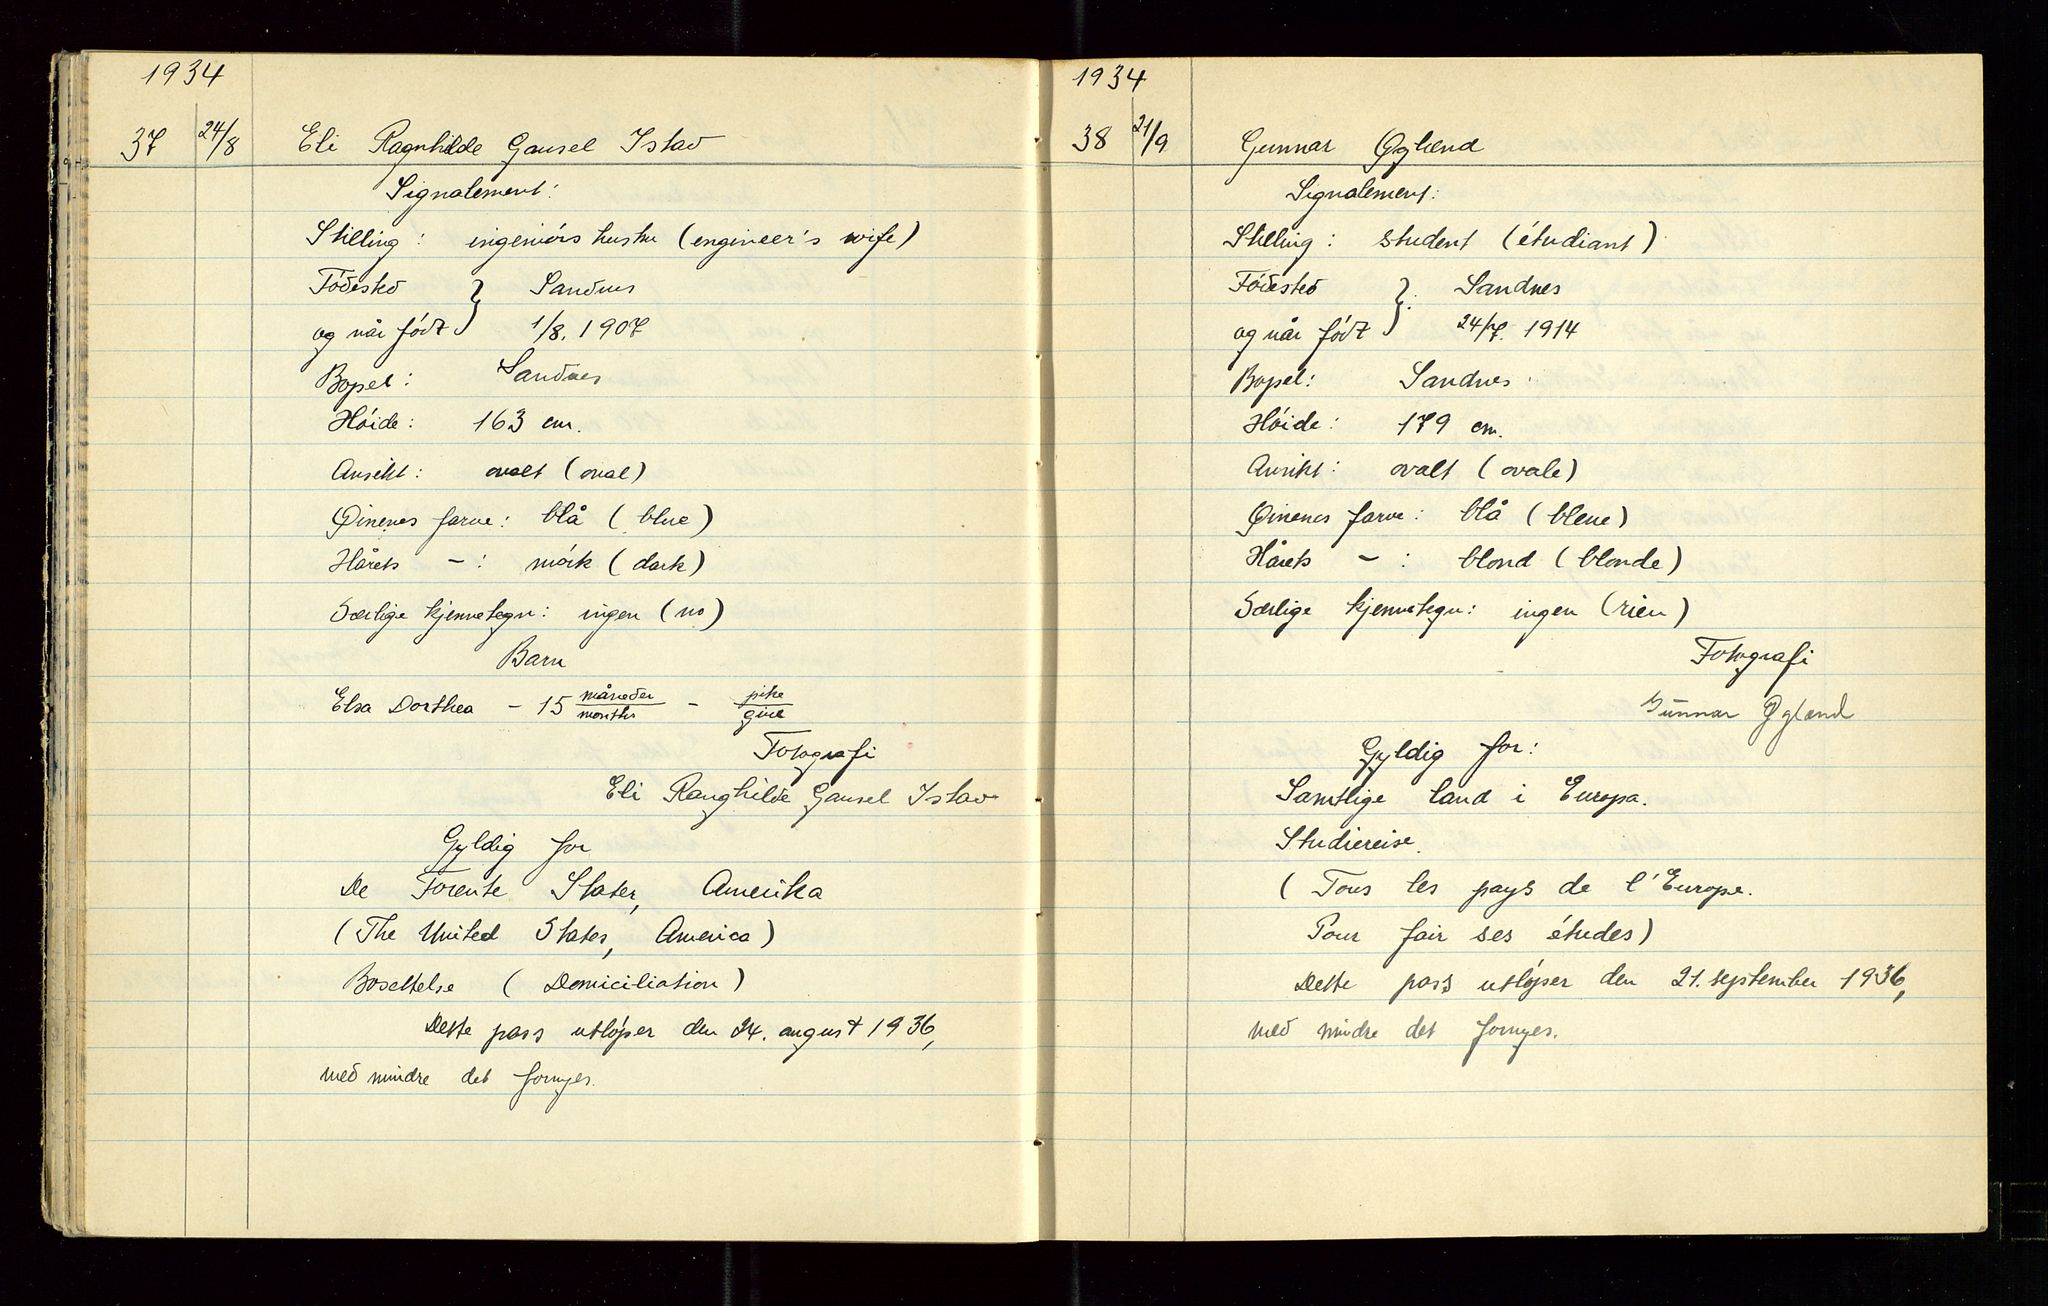 1934
37 24/8 Eli Ragnhilde Gausel Istad
Signalement:
Stilling: ingeniørs hustru (engineer's wife)
Fødested } Sandnes
og når født } 1/8. 1907
Bopel: Sandnes
Høide: 163 cm.
Ansikt: ovalt (oval)
Øinenes farve: blå (blue)
Hårets - : mørk (dark)
Særlige kjennetegn: ingen (no)
Barn
Elsa Dorthea - 15 måneder/months - pike/girl
Fotografi
Eli Ranghilde Gausel Istad
Gyldig for
De Forente Stater, Amerika
(The United States, America)
Bosettelse (Domiciliation)
Dette pass utløper den 24. august 1936,
med mindre det fornyes.
1934
38 21/9 Gunnar Øglænd
Signalement:
Stilling: student (étudiant)
Fødested } : Sandnes
og når født } 24/7. 1914
Bopel: Sandnes
Høide: 179 cm.
Ansikt: ovalt (ovale)
Øinenes farve: blå (bleue)
Hårets - : blond (blonde)
Særlige kjennetegn: ingen (rien)
Fotografi
Gunnar Øglænd
Gyldig for:
Samtlige land i Europa.
Studiereise.
(Tous les pays de l'Europe.
Pour fair ses études)
Dette pass utløper den 21. september 1936,
med mindre det fornyes.